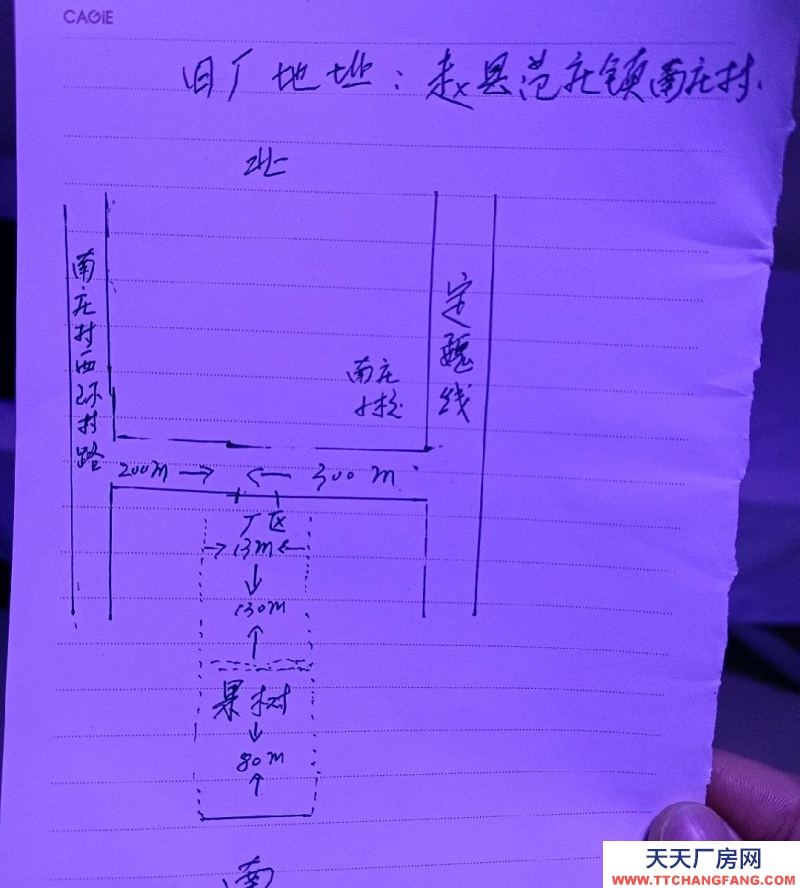 CAGiE
旧厂地址：赵县范庄镇南庄村.
北
南庄村西环村路
定魏线
南庄
小校
200m → ← 300m
厂区
→13m←
↓
130m
↑
果树
↓
80m
↑
南
天天厂房网
WWW.TTCHANGFANG.COM